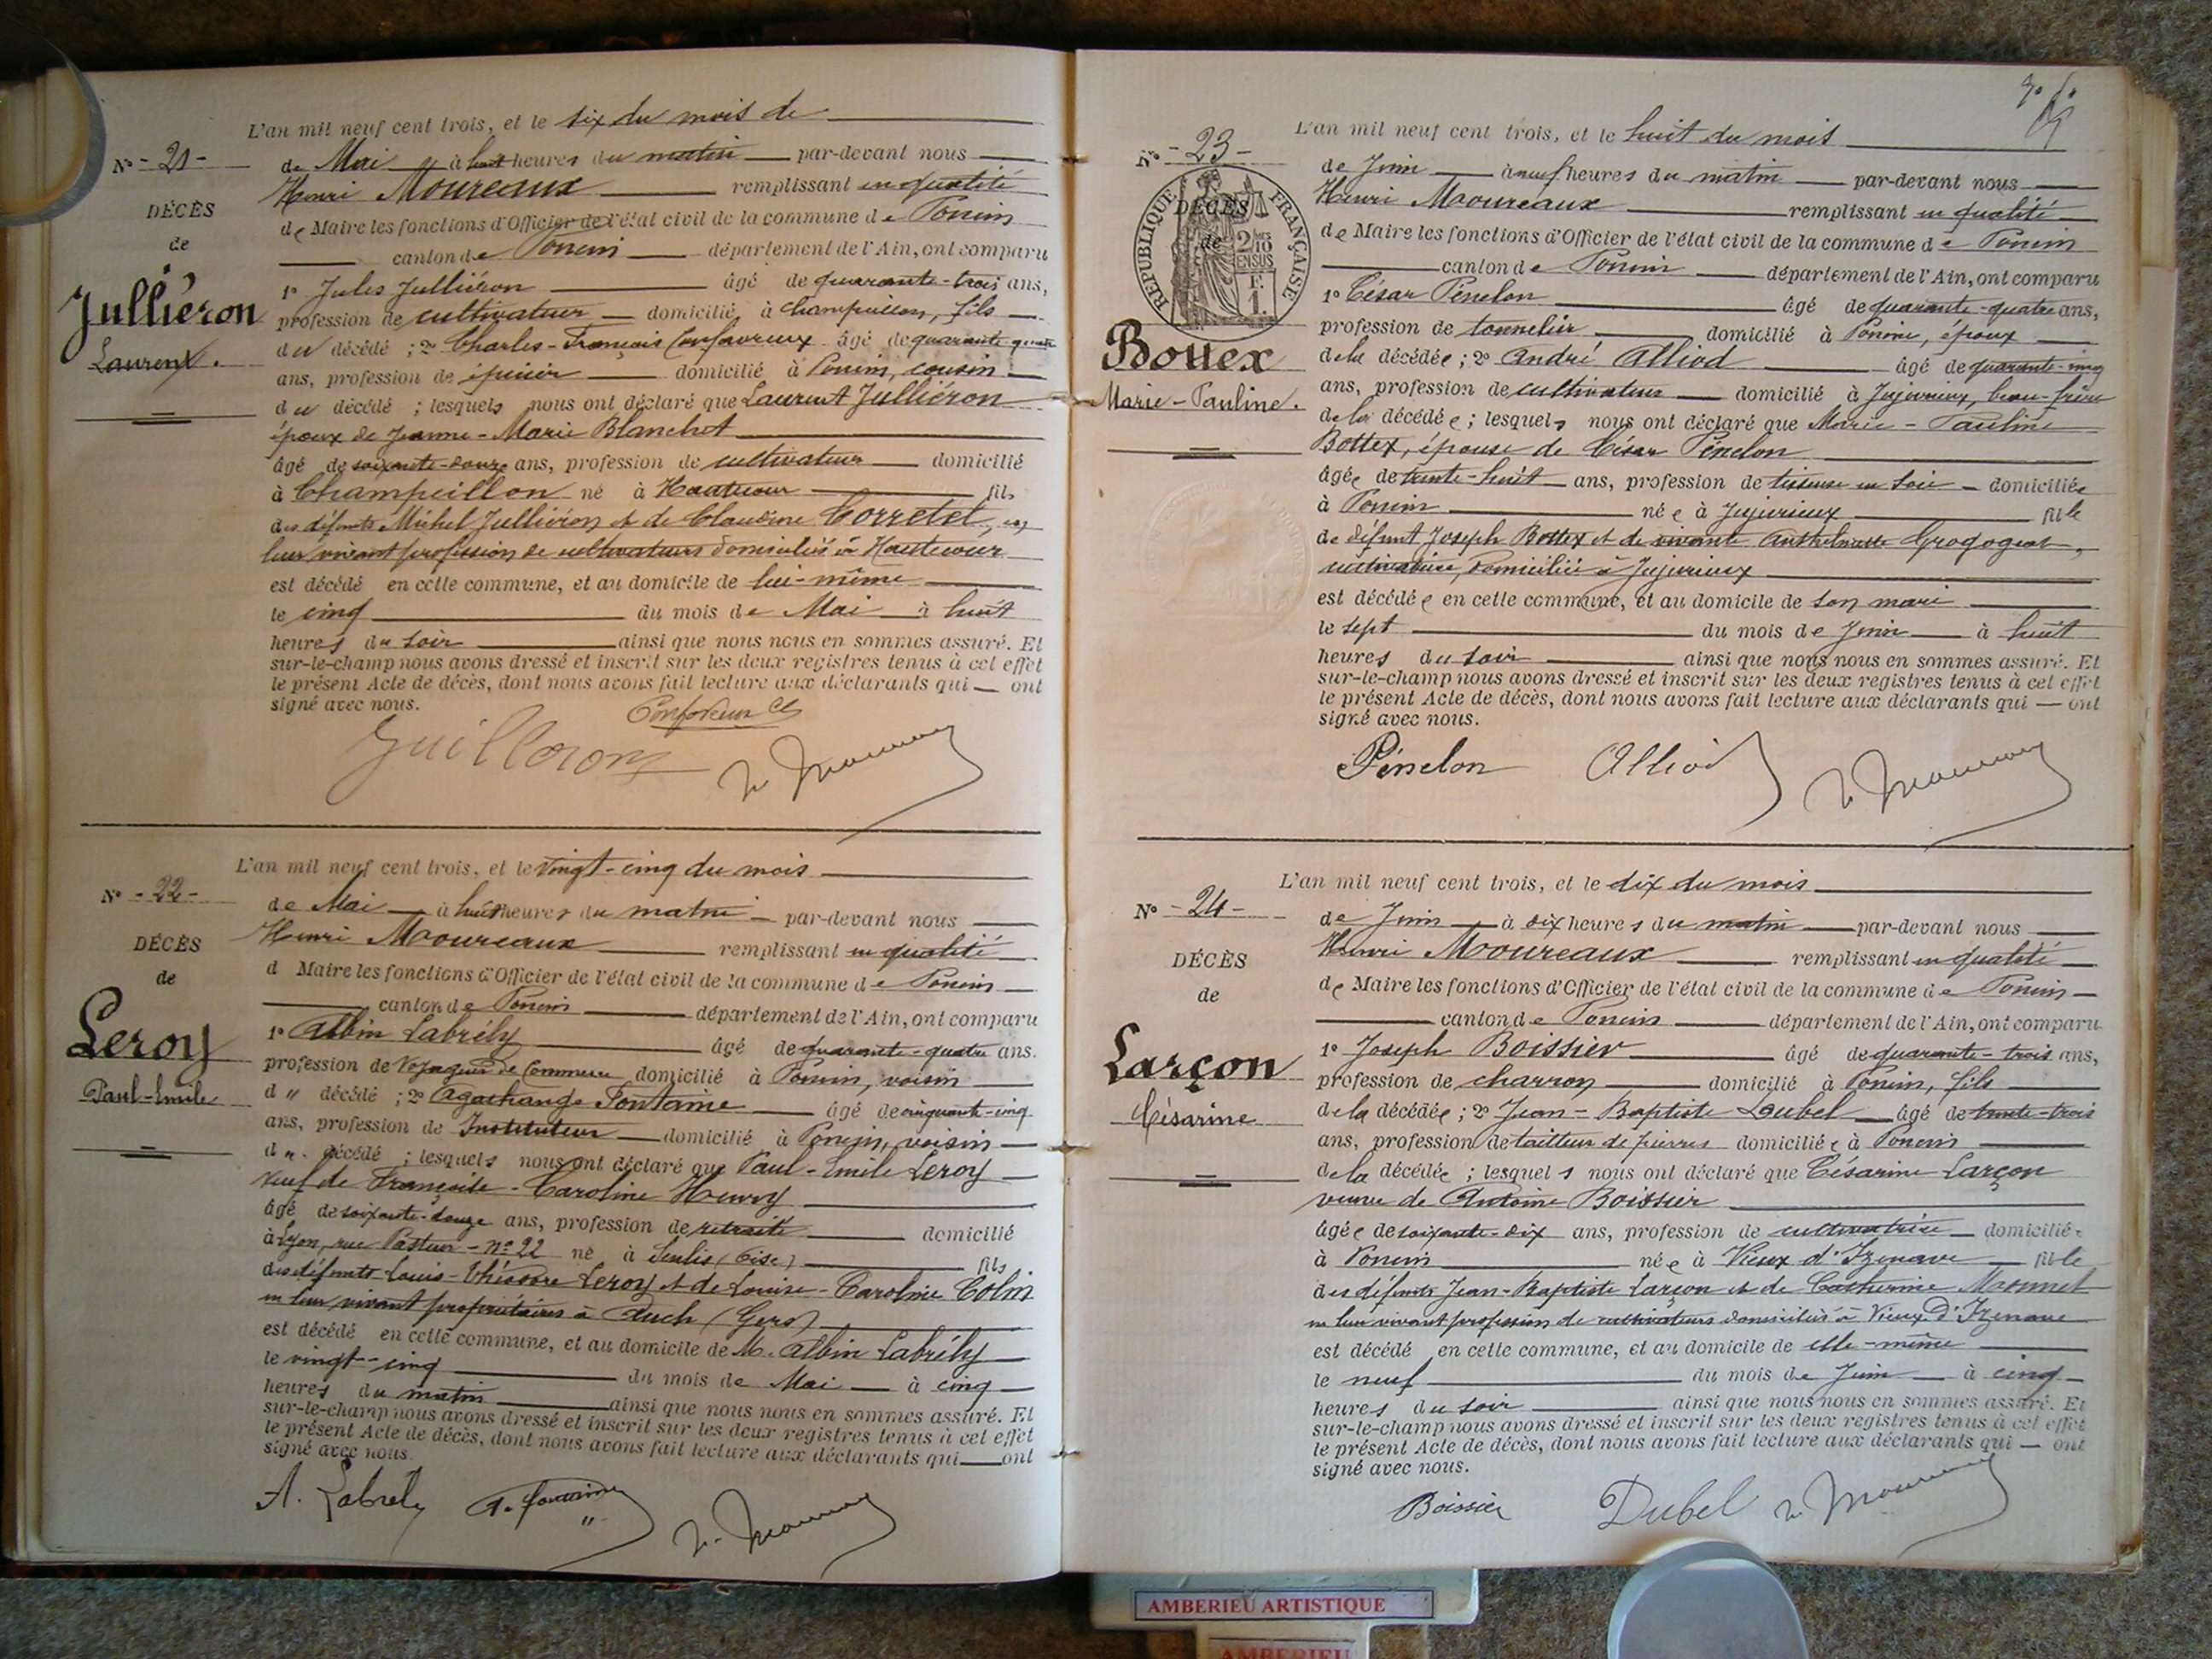 N° - 21 -
DÉCÈS
de
Julliéron
Laurent.
L'an mil neuf cent trois, et le six du mois de
de Mai à huit heures du matin par-devant nous
Henri Moureaux remplissant en qualité
de Maire les fonctions d'Officier de l'état civil de la commune de Poncin
canton de Poncin département de l'Ain, ont comparu
1° Jules Julliéron âgé de quarante-trois ans,
profession de cultivateur domicilié à Champeillon, fils
du décédé ; 2° Charles-François Confavreux âgé de quarante quatre
ans, profession de épicier domicilié à Poncin, cousin
du décédé ; lesquels nous ont déclaré que Laurent Julliéron
époux de Jeanne-Marie Blanchet
âgé de soixante-douze ans, profession de cultivateur domicilié
à Champeillon né à Hautecour fils
des défunts Michel Julliéron et de Claudine Corretel, en
leur vivant profession de cultivateurs domiciliés à Hautecour
est décédé en cette commune, et au domicile de lui-même
le cinq du mois de Mai à huit
heures du soir ainsi que nous nous en sommes assuré. Et
sur-le-champ nous avons dressé et inscrit sur les deux registres tenus à cet effet
le présent Acte de décès, dont nous avons fait lecture aux déclarants qui — ont
signé avec nous.
Confavreux
Juilleron
H. Moureaux
N° - 22 -
DÉCÈS
de
Leroy
Paul-Emile
L'an mil neuf cent trois, et le vingt-cinq du mois
de Mai à huit heures du matin par-devant nous
Henri Moureaux remplissant en qualité
d Maire les fonctions d'Officier de l'état civil de la commune de Poncin
canton de Poncin département de l'Ain, ont comparu
1° Albin Labrély âgé de quarante-quatre ans.
profession de Voyageur de Commerce domicilié à Poncin, voisin
d " décédé ; 2° Agathange Fontaine âgé de cinquante-cinq
ans, profession de Instituteur domicilié à Poncin, voisin
d ". décédé ; lesquels nous ont déclaré que Paul-Emile Leroy
veuf de Françoise-Caroline Henry
âgé de soixante-douze ans, profession de retraité domicilié
à Lyon, rue Pasteur - n° 22 né à Senlis (Oise) fils
des défunts Louis-Théodore Leroy et de Louise-Caroline Colin
en leur vivant propriétaires à Auch (Gers)
est décédé en cette commune, et au domicile de M. Albin Labrély
le vingt-cinq du mois de Mai à cinq
heures du matin ainsi que nous nous en sommes assuré. Et
sur-le-champ nous avons dressé et inscrit sur les deux registres tenus à cet effet
le présent Acte de décès, dont nous avons fait lecture aux déclarants qui ont
signé avec nous.
A. Labrély A. Fontaine H. Moureaux
N° - 23 -
RÉPUBLIQUE FRANÇAISE
DÉCÈS
de
2/10 EN SUS
F. 1.
Bottex
Marie-Pauline.
L'an mil neuf cent trois, et le huit du mois
de Juin à neuf heures du matin par-devant nous
Henri Moureaux remplissant en qualité
de Maire les fonctions d'Officier de l'état civil de la commune de Poncin
canton de Poncin département de l'Ain, ont comparu
1° César Pénelon âgé de quarante-quatre ans,
profession de tonnelier domicilié à Poncin, époux
de la décédée ; 2° André Alliod âgé de quarante-cinq
ans, profession de cultivateur domicilié à Jujurieux, beau-frère
de la décédée ; lesquels nous ont déclaré que Marie-Pauline
Bottex, épouse de César Pénelon
âgée de trente-huit ans, profession de tisseuse en soie domiciliée
à Poncin née à Jujurieux fille
de défunt Joseph Bottex et de vivante Anthelmette Grogogeat,
cultivatrice, domiciliée à Jujurieux
est décédée en cette commune, et au domicile de son mari
le sept du mois de Juin à huit
heures du soir ainsi que nous nous en sommes assuré. Et
sur-le-champ nous avons dressé et inscrit sur les deux registres tenus à cet effet
le présent Acte de décès, dont nous avons fait lecture aux déclarants qui — ont
signé avec nous.
Pénelon Alliod H. Moureaux
N° - 24 -
DÉCÈS
de
Larçon
Césarine
L'an mil neuf cent trois, et le dix du mois
de Juin à dix heures du matin par-devant nous
Henri Moureaux remplissant en qualité
de Maire les fonctions d'Officier de l'état civil de la commune de Poncin
canton de Poncin département de l'Ain, ont comparu
1° Joseph Boissier âgé de quarante-trois ans,
profession de charron domicilié à Poncin, fils
de la décédée ; 2° Jean-Baptiste Dubel âgé de trente-trois
ans, profession de tailleur de pierres domicilié à Poncin
de la décédée ; lesquels nous ont déclaré que Césarine Larçon
veuve de Antoine Boissier
âgée de soixante-dix ans, profession de cultivatrice domiciliée
à Poncin née à Vieux d'Izenave fille
des défunts Jean-Baptiste Larçon et de Catherine Monnet
en leur vivant profession de cultivateurs domiciliés à Vieux d'Izenave
est décédé en cette commune, et au domicile de elle-même
le neuf du mois de Juin à cinq
heures du soir ainsi que nous nous en sommes assuré. Et
sur-le-champ nous avons dressé et inscrit sur les deux registres tenus à cet effet
le présent Acte de décès, dont nous avons fait lecture aux déclarants qui — ont
signé avec nous.
Boissier Dubel H. Moureaux
AMBERIEU ARTISTIQUE
AMBERIEU